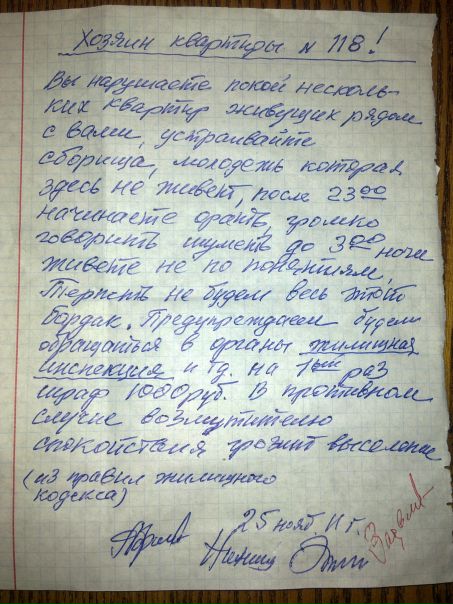 Хозяин квартиры N 118!
Вы нарушаете покой несколь-
ких квартир живущих рядом
с вами, устраивайте
сборища, молодежь которая
здесь не живет, после 23 00
начинаете орать, громко
говорить шуметь до 3 00 ночи
живете не по понятиям,
Терпеть не будем весь этот
бардак. Предупреждаем будем
обращаться в органы жилищная
инспекция и тд. на 1ый раз
штраф 1000 руб. В противном
случие возмутителю
спокойствия грозит выселение
(из правил жилищного
кодекса)
25 нояб. 11 г.